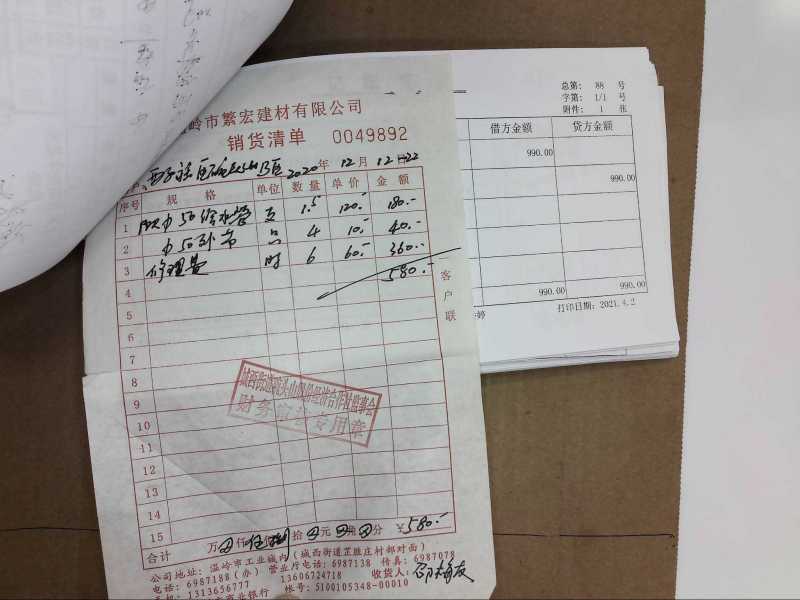 岭市繁宏建材有限公司
销货清单 0049892
2020年12月12
序号 规格 单位 数量 单价 金额
1 φ50给水管 支 1.5 120.- 180.-
2 φ50 4 10.- 40.-
3 修理费 时 6 60.- 360.-
4 580.-
5
6
7
8
9
10
11
12
13
14
15
客户联
财务监督专用章
合计 万 仟 伍佰 拾 元 角 分 ¥580.-
公司地址：温岭市工业城内（城西街道芷胜庄村部对面）
电话：6987188（办）营业厅电话：6987138 传真：6987078
手机：1313656777 13606724718 收货人：
商业银行 帐号：5100105348-00010
总第：88 号
字第：1/1 号
附件：1 张
借方金额 贷方金额
990.00
990.00
990.00 990.00
婷 打印日期：2021.4.2